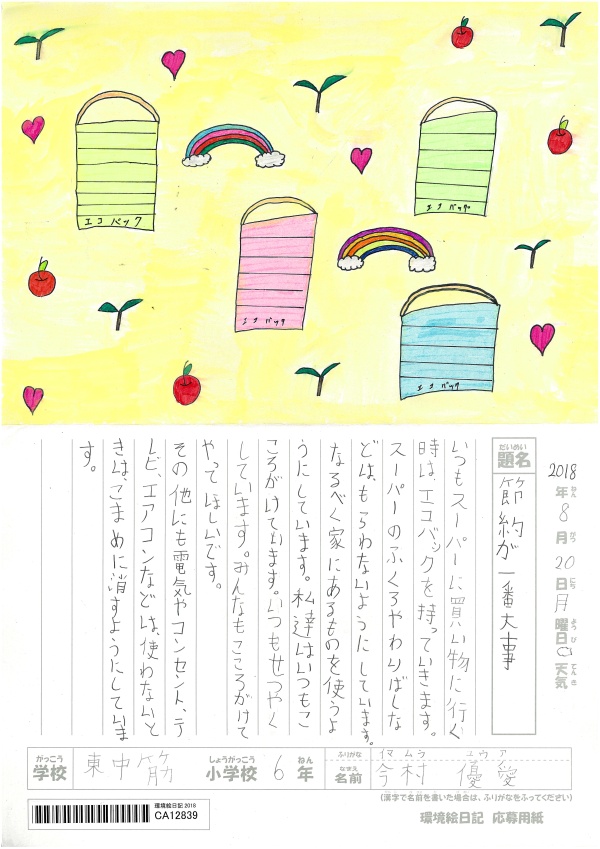 エコバック
エコバッグ
エコバック
エコバック
2018年8月20日月曜日 天気
ねん
がつ
にち
ようび
てんき
だいめい
題名
節約が一番大事
いつもスーパーに買い物に行く
時は、エコバックを持っていきます。
スーパーのふくろやわりばしな
どは、もらわないようにしています。
なるべく家にあるものを使うよ
うにしています。私達はいつもこ
ころがけています。いつもせつやく
しています。みんなもこころがけて
やってほしいです。
その他にも電気やコンセント、テ
レビ、エアコンなどは、使わないと
きは、こまめに消すようにしていま
す。
がっこう
学校
東中筋
しょうがっこう
小学校
6
ねん
年
ふりがな
イマムラ ユウア
なまえ
名前
今村 優愛
(漢字で名前を書いた場合は、ふりがなをふってください)
環境絵日記 2018
CA12839
環境絵日記 応募用紙